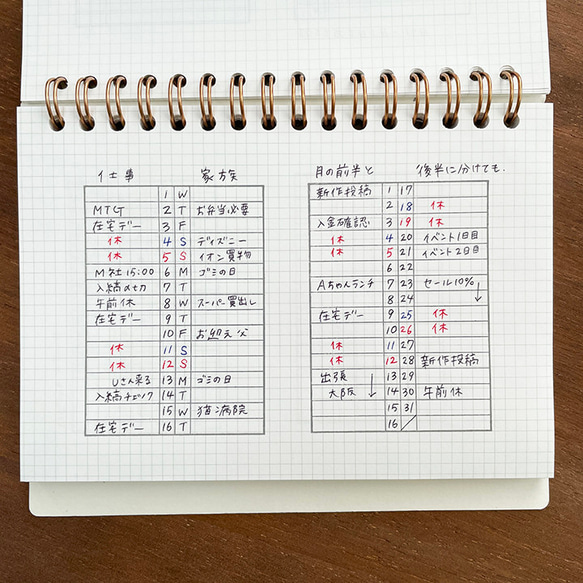 仕事 家族
1 W
MTG 2 T お弁当必要
在宅デー 3 F
休 4 S ディズニー
休 5 S イオン買物
M社15:00 6 M ゴミの日
入稿〆切 7 T
午前休 8 W スーパー買出し
在宅デー 9 T
10 F お迎え父
休 11 S
休 12 S
Uさん来る 13 M ゴミの日
入稿チェック 14 T
15 W 猫病院
在宅デー 16 T
月の前半と 後半に分けても.
新作投稿 1 17
2 18 休
入金確認 3 19 休
休 4 20 イベント1日目
休 5 21 イベント2日目
6 22
Aちゃんランチ 7 23 セール10%
8 24 ↓
在宅デー 9 25 休
10 26 休
休 11 27
休 12 28 新作投稿
出張 13 29
大阪 ↓ 14 30 午前休
15 31
16